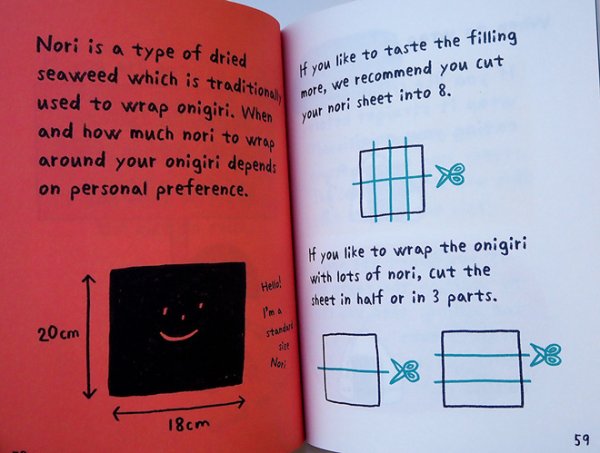 Nori is a type of dried
seaweed which is traditionally
used to wrap onigiri. When
and how much nori to wrap
around your onigiri depends
on personal preference.
20cm
Hello!
I'm a
standard
size
Nori
18cm
If you like to taste the filling
more, we recommend you cut
your nori sheet into 8.
If you like to wrap the onigiri
with lots of nori, cut the
sheet in half or in 3 parts.
59